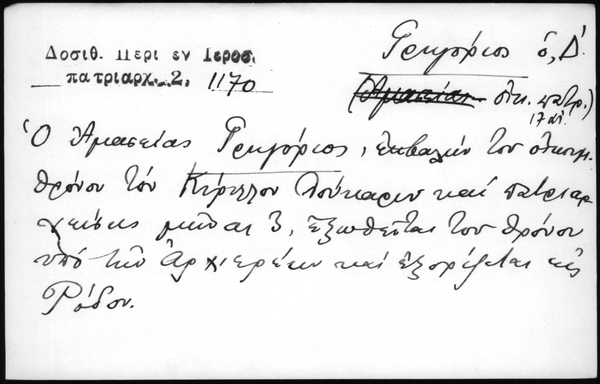 Δοσιθ. Περι εν Ιεροσ.
πατριαρχ. 2, 1170
Γρηγόριος ὁ, Δ΄.
(Ἀμασείας οἰκ. πατρ.)
17 αἰ.
Ὁ Ἀμασείας Γρηγόριος, ἐκβαλὼν τοῦ οἰκουμ.
θρόνου τὸν Κύριλλον Λούκαριν καὶ πατριαρ
χεύσας μῆνας 3, ἐξωθεῖται τοῦ θρόνου
ὑπὸ τῶν Ἀρχιερέων καὶ ἐξορίζεται εἰς
Ρόδον.